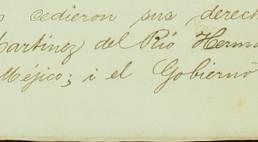 cedieron sus derech
artinez del Rio Herma
Méjico; i el Gobierno